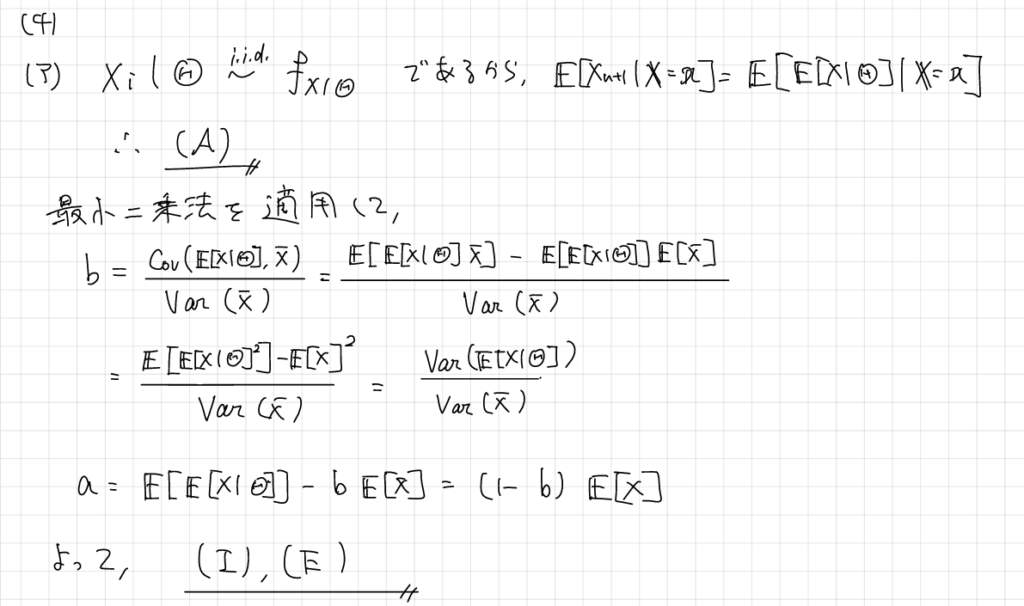 (4)
(ア) Xi | Θ i.i.d. ~ f_{X|Θ} であるから, E[X_{n+1} | X = x] = E[E[X|Θ] | X = x]
∴ (A)
最小二乗法を適用して,
b = Cov(E[X|Θ], X̄) / Var(X̄) = (E[E[X|Θ] X̄] - E[E[X|Θ]] E[X̄]) / Var(X̄)
= (E[E[X|Θ]²] - E[X]²) / Var(X̄) = Var(E[X|Θ]) / Var(X̄)
a = E[E[X|Θ]] - b E[X̄] = (1 - b) E[X]
よって, (I), (E)